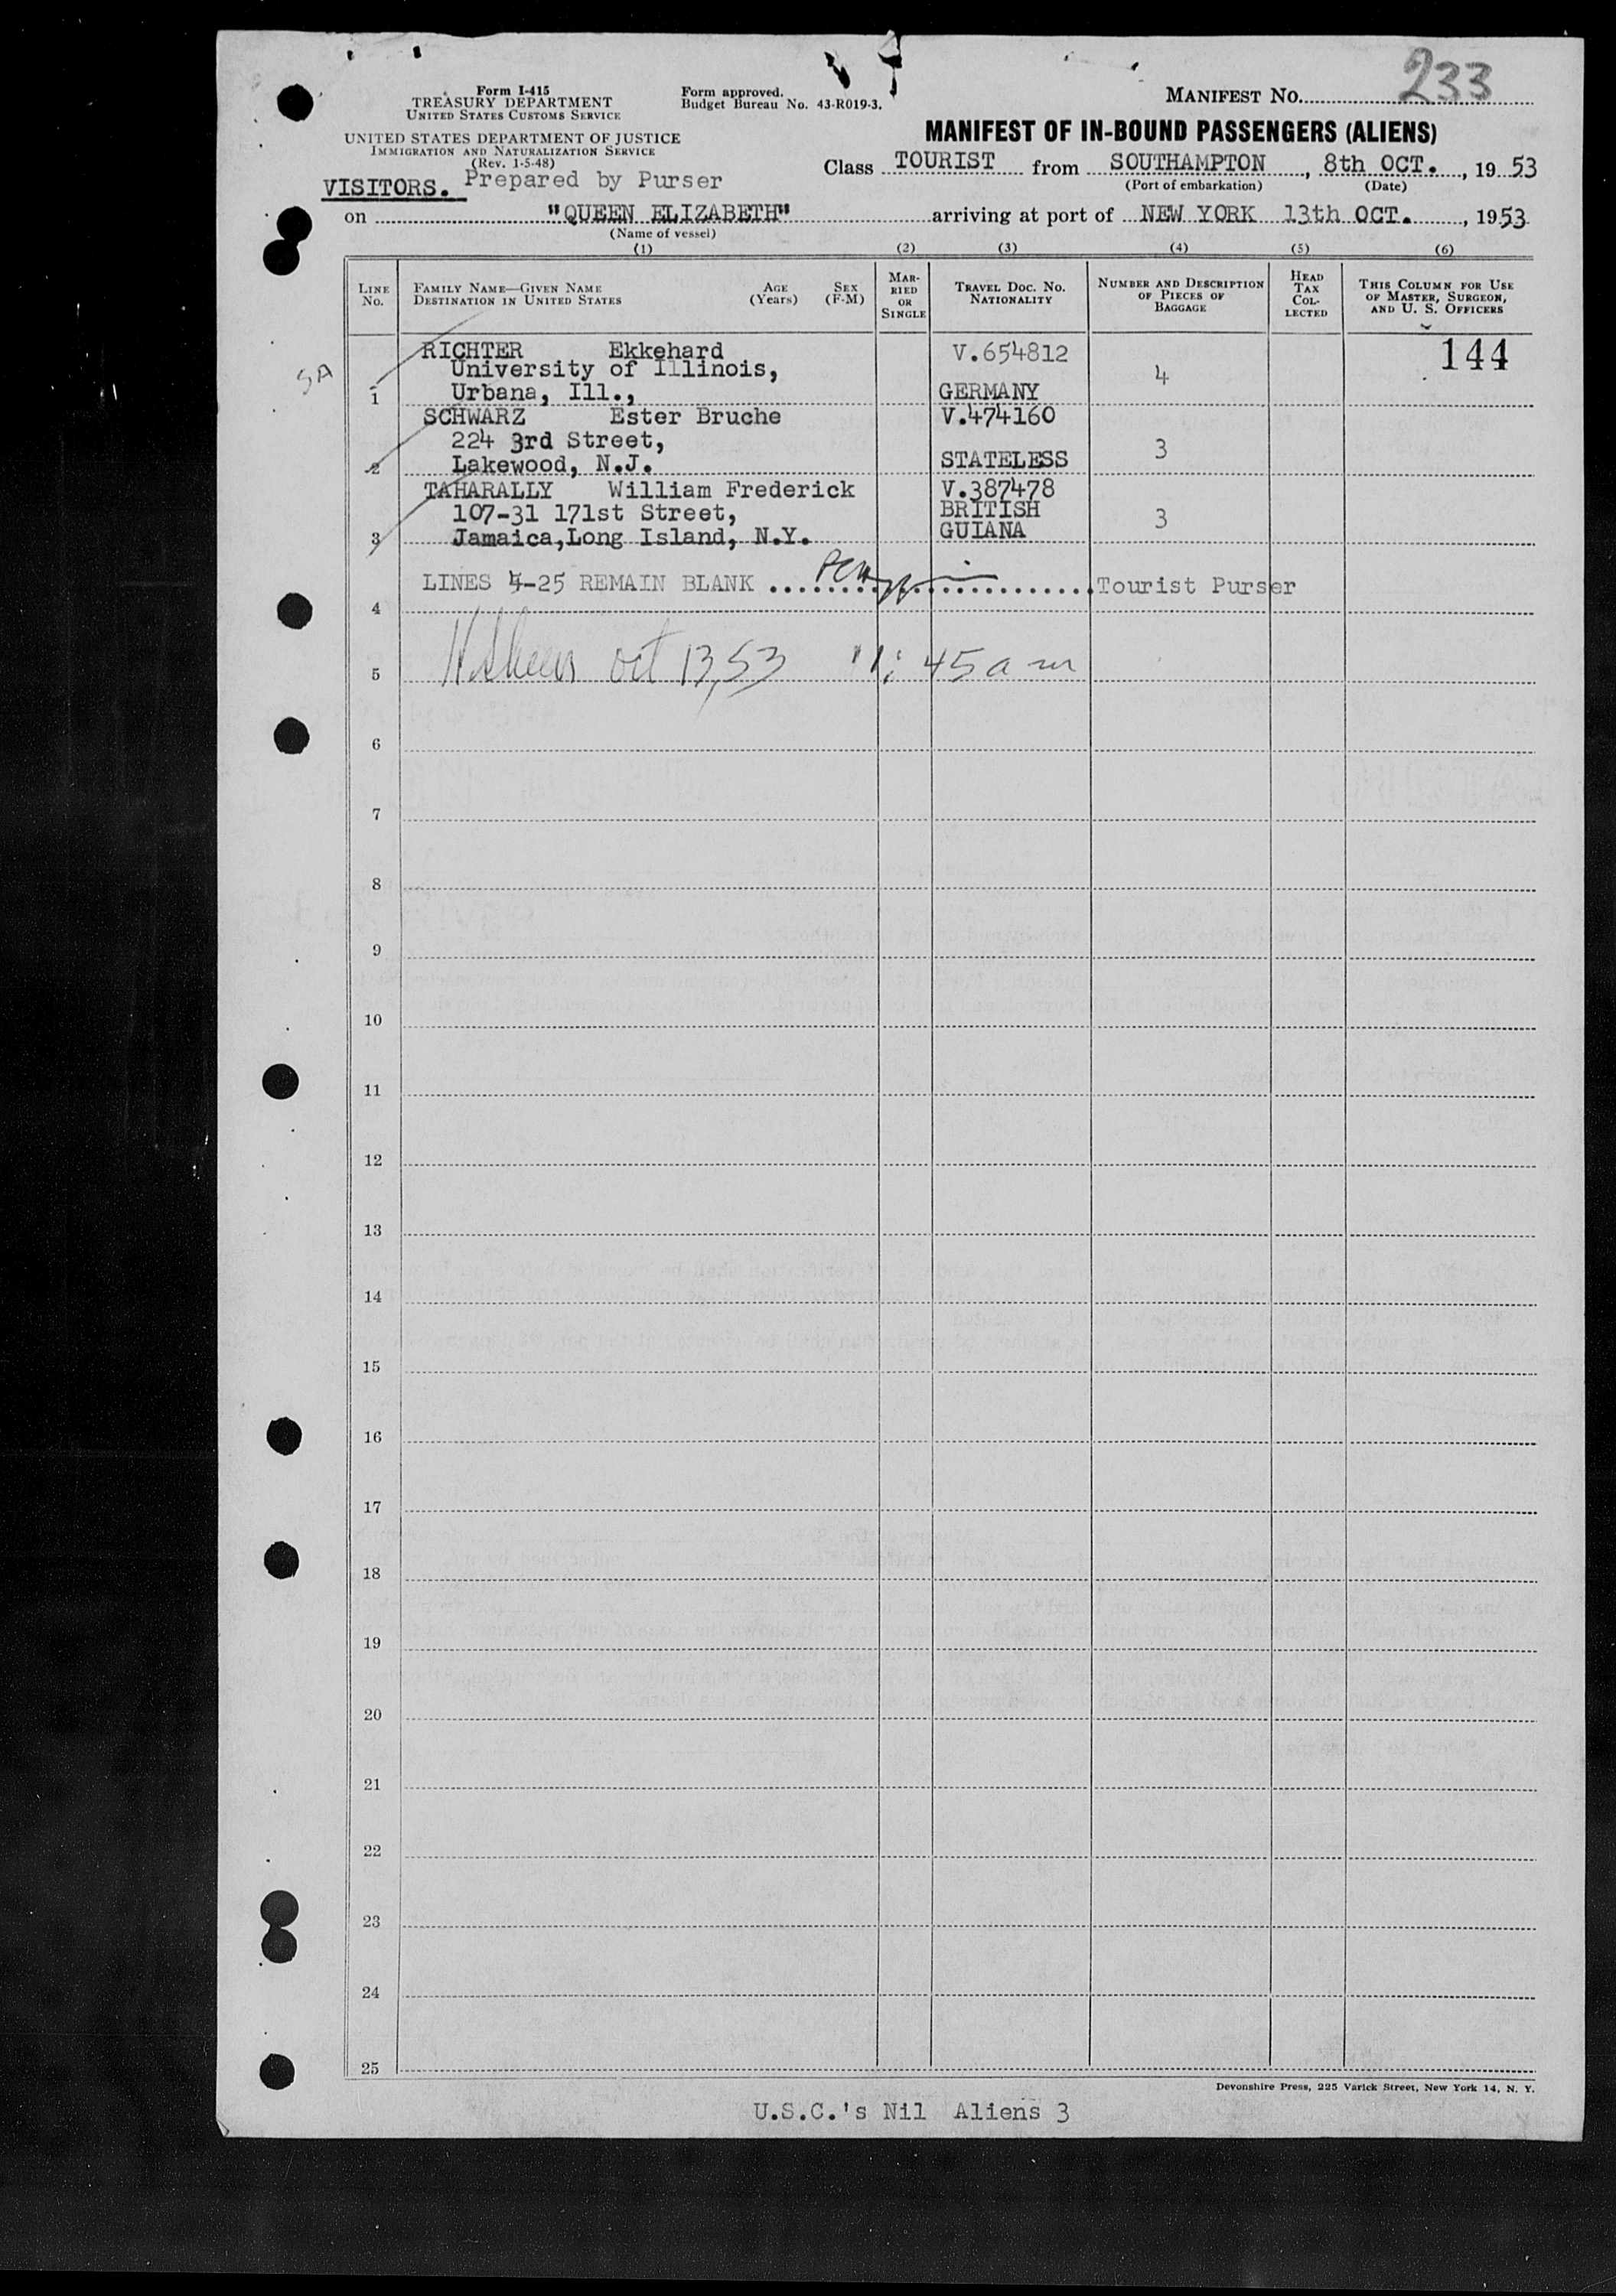 Form I-415
TREASURY DEPARTMENT
UNITED STATES CUSTOMS SERVICE
UNITED STATES DEPARTMENT OF JUSTICE
IMMIGRATION AND NATURALIZATION SERVICE
(Rev. 1-5-48)
Form approved.
Budget Bureau No. 43-R019-3.
MANIFEST NO. 233
MANIFEST OF IN-BOUND PASSENGERS (ALIENS)
Class TOURIST from SOUTHAMPTON, 8th OCT., 19 53
(Port of embarkation) (Date)
VISITORS. Prepared by Purser
on "QUEEN ELIZABETH" arriving at port of NEW YORK 13th OCT., 1953
(Name of vessel)
(1) (2) (3) (4) (5) (6)
LINE No.
FAMILY NAME—GIVEN NAME
DESTINATION IN UNITED STATES
AGE (Years)
SEX (F-M)
MARRIED OR SINGLE
TRAVEL DOC. NO. NATIONALITY
NUMBER AND DESCRIPTION OF PIECES OF BAGGAGE
HEAD TAX COLLECTED
THIS COLUMN FOR USE OF MASTER, SURGEON, AND U. S. OFFICERS
RICHTER Ekkehard V.654812 144
SA University of Illinois, 4
1 Urbana, Ill., GERMANY
SCHWARZ Ester Bruche V.474160
224 3rd Street, 3
2 Lakewood, N.J. STATELESS
TAHARALLY William Frederick V.387478
107-31 171st Street, BRITISH 3
3 Jamaica,Long Island, N.Y. GUIANA
LINES 4-25 REMAIN BLANK Tourist Purser
4
5 Oct 13, 53 11:45 a m
6
7
8
9
10
11
12
13
14
15
16
17
18
19
20
21
22
23
24
25
Devonshire Press, 225 Varick Street, New York 14, N. Y.
U.S.C.'s Nil Aliens 3